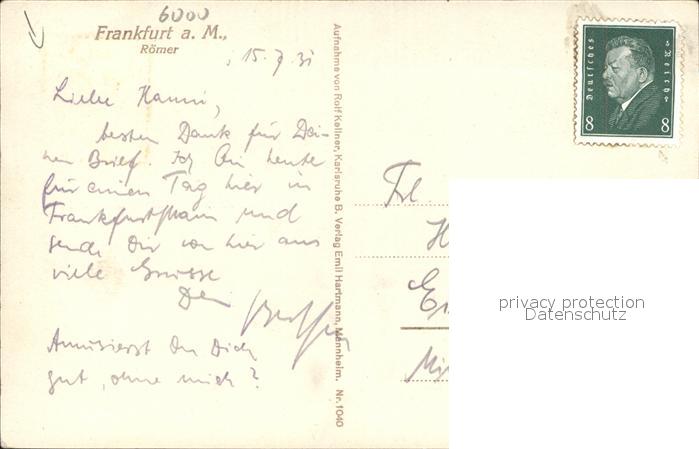 6000
Frankfurt a. M.,
Römer
15.7.31
Liebe Hanni,
besten Dank für Dei-
nen Brief. Ich bin heute
für einen Tag hier in
Frankfurt/Main und
sende Dir von hier aus
viele Grüsse
Dein
Amüsierst Du Dich
gut, ohne mich?
Aufnahme von Rolf Kellner, Karlsruhe B. Verlag Emil Hartmann, Mannheim. Nr. 1040
Deutsches Reich
8 8
Frl.
privacy protection
Datenschutz